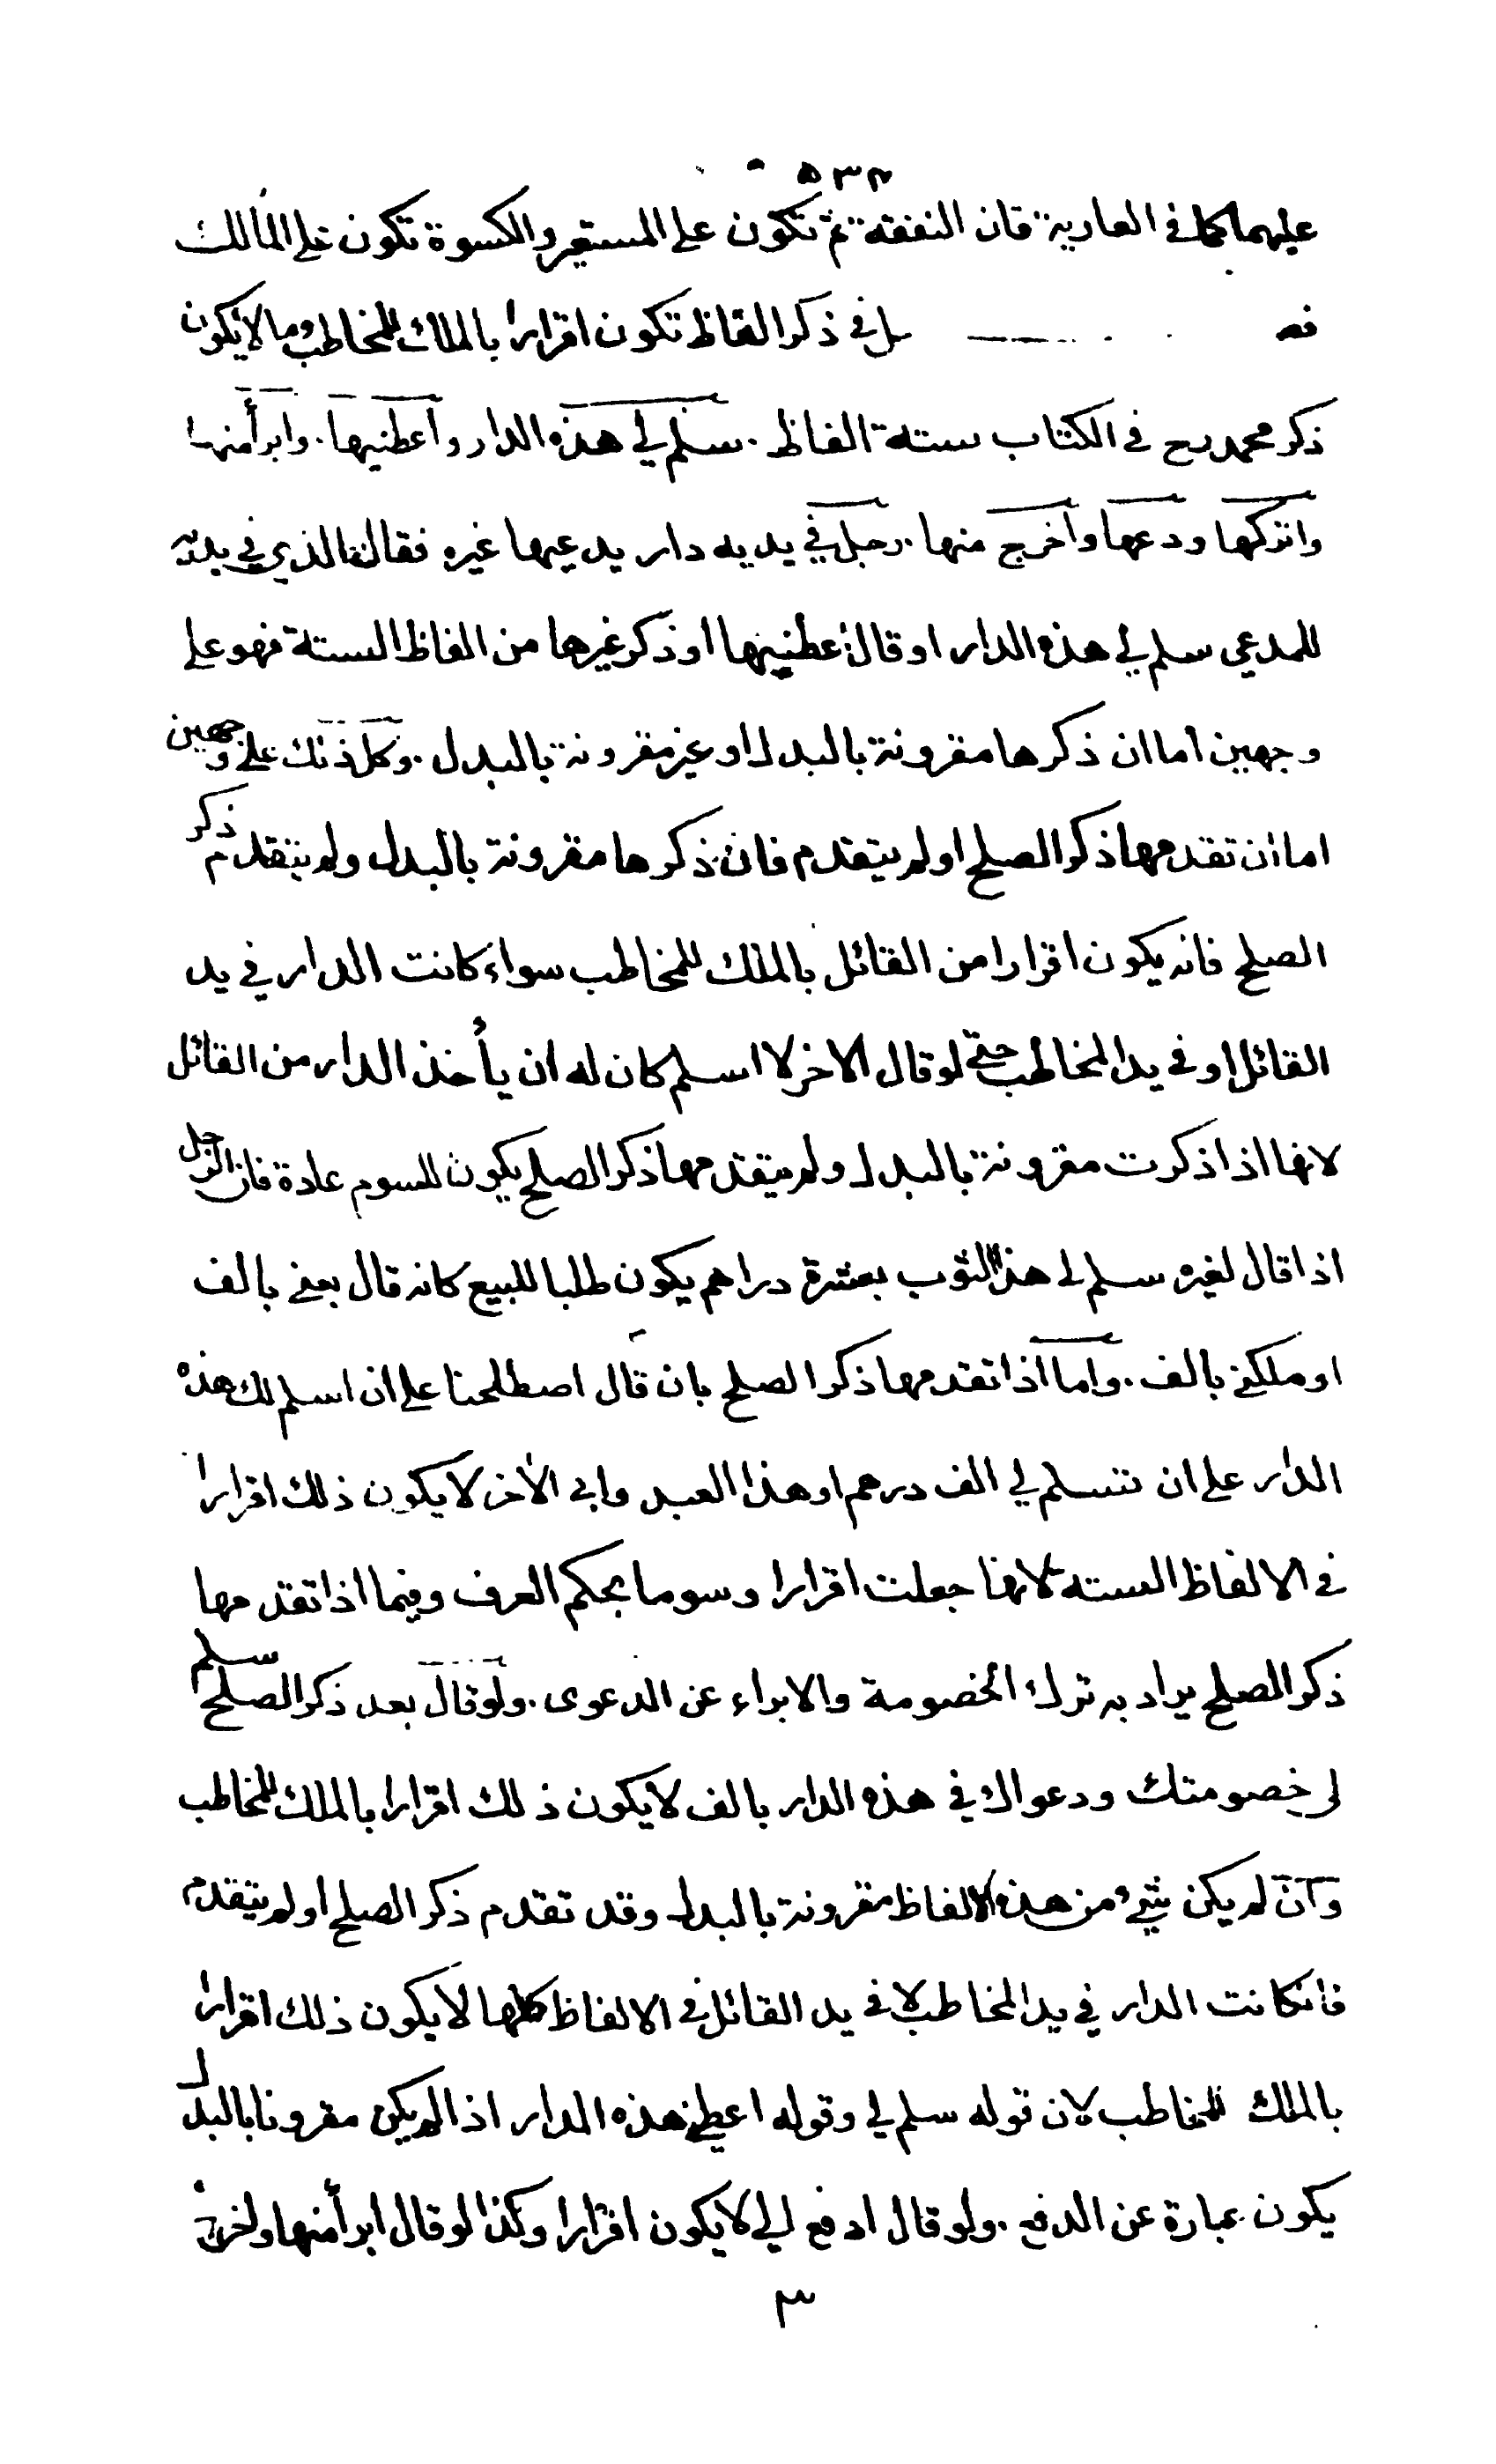 ٥٣٢
عليهما كما في العارية فان النفقة ثمّ تكون على المستعير والكسوة تكون على المالك
فصل في ذكر الفاظ تكون اقرارا بالملك للمخاطب وما لا يكون
ذكر محمد رح في الكتاب ستة الفاظ . سلم لي هذه الدار واعطنيها . وابرأ منها
واتركها ودعها واخرج منها . رجل في يديه دار يدعيها غيره فقال الذي في يديه
للمدعي سلم لي هذه الدار او قال اعطنيها او ذكر غيرها من الفاظ الستة فهو على
وجهين اما ان ذكرها مقرونة بالبدل او غير مقرونة بالبدل . وكل ذلك على وجهين
اما ان تقدمها ذكر الصلح او لم يتقدم فان ذكرها مقرونة بالبدل ولم يتقدم ذكر
الصلح فانه يكون اقرارا من القائل بالملك للمخاطب سواء كانت الدار في يد
القائل او في يد المخاطب حتى لو قال الاخر لا اسلم كان له ان يأخذ الدار من القائل
لانها اذا ذكرت مقرونة بالبدل ولم يتقدمها ذكر الصلح يكون للسوم عادة فان الرجل
اذا قال لغيره سلم لي هذا الثوب بعشرة دراهم يكون طلبا للبيع كانه قال بعني بالف
او ملكني بالف . واما اذا تقدمها ذكر الصلح بان قال اصطلحنا على ان اسلم لك هذه
الدار على ان تسلم لي الف درهم او هذا العبد وابى الاخر لا يكون ذلك اقرارا
في الالفاظ الستة لانها جعلت اقرارا وسوما بحكم العرف وفيما اذا تقدمها
ذكر الصلح يراد به ترك الخصومة والابراء عن الدعوى . ولو قال بعد ذكر الصلح سلم
لي خصومتك ودعواك في هذه الدار بالف لا يكون ذلك اقرارا بالملك للمخاطب
وان لم يكن شيء من هذه الالفاظ مقرونة بالبدل وقد تقدم ذكر الصلح او لم يتقدم
فان كانت الدار في يد المخاطب لا في يد القائل في الالفاظ كلها لا يكون ذلك اقرارا
بالملك للمخاطب لان قوله سلم لي وقوله اعطني هذه الدار اذا لم يكن مقرونا بالبدل
يكون عبارة عن الدفع . ولو قال ادفع الي لا يكون اقرارا وكذا لو قال ابرأ منها واخرج